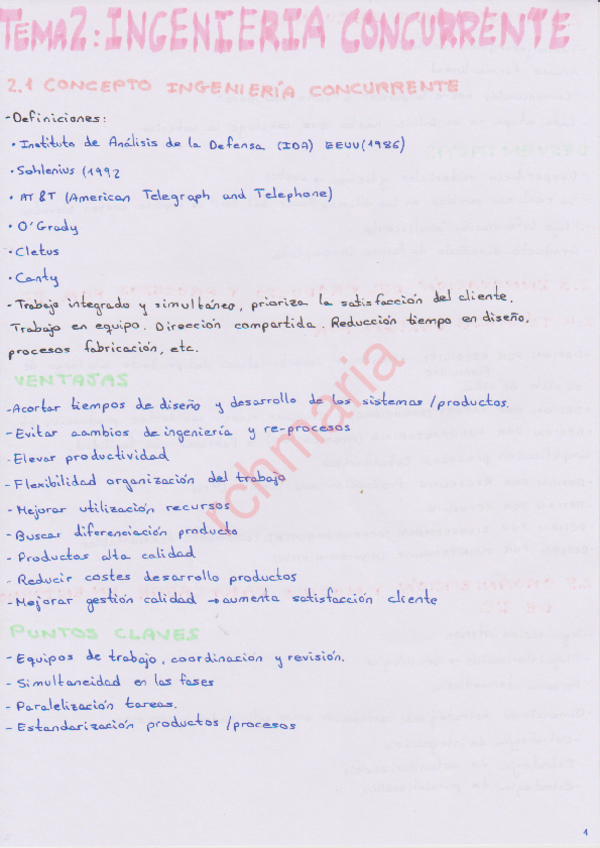 TEMA 2: INGENIERIA CONCURRENTE
2.1 CONCEPTO INGENIERÍA CONCURRENTE
- Definiciones:
• Instituto de Análisis de la Defensa (IDA) EEUU (1986)
• Sohlenius (1992
• AT&T (American Telegraph and Telephone)
• O'Grady
• Cletus
• Canty
- Trabajo integrado y simultáneo, prioriza la satisfacción del cliente.
Trabajo en equipo. Dirección compartida. Reducción tiempo en diseño,
procesos fabricación, etc.
VENTAJAS
- Acortar tiempos de diseño y desarrollo de los sistemas/productos.
- Evitar cambios de ingeniería y re-procesos
- Elevar productividad
- Flexibilidad organización del trabajo
- Mejorar utilización recursos
- Buscar diferenciación producto
- Productos alta calidad
- Reducir costes desarrollo productos
- Mejorar gestión calidad → aumenta satisfacción cliente
PUNTOS CLAVES
- Equipos de trabajo, coordinación y revisión.
- Simultaneidad en las fases
- Paralelización tareas.
- Estandarización productos/procesos
rchmaria
1